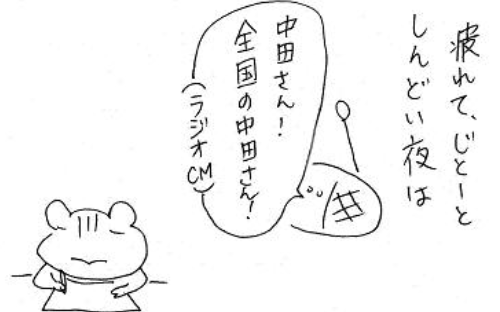 疲れて、じとーと
しんどい夜は
中田さん!
全国の中田さん!
(ラジオCM)